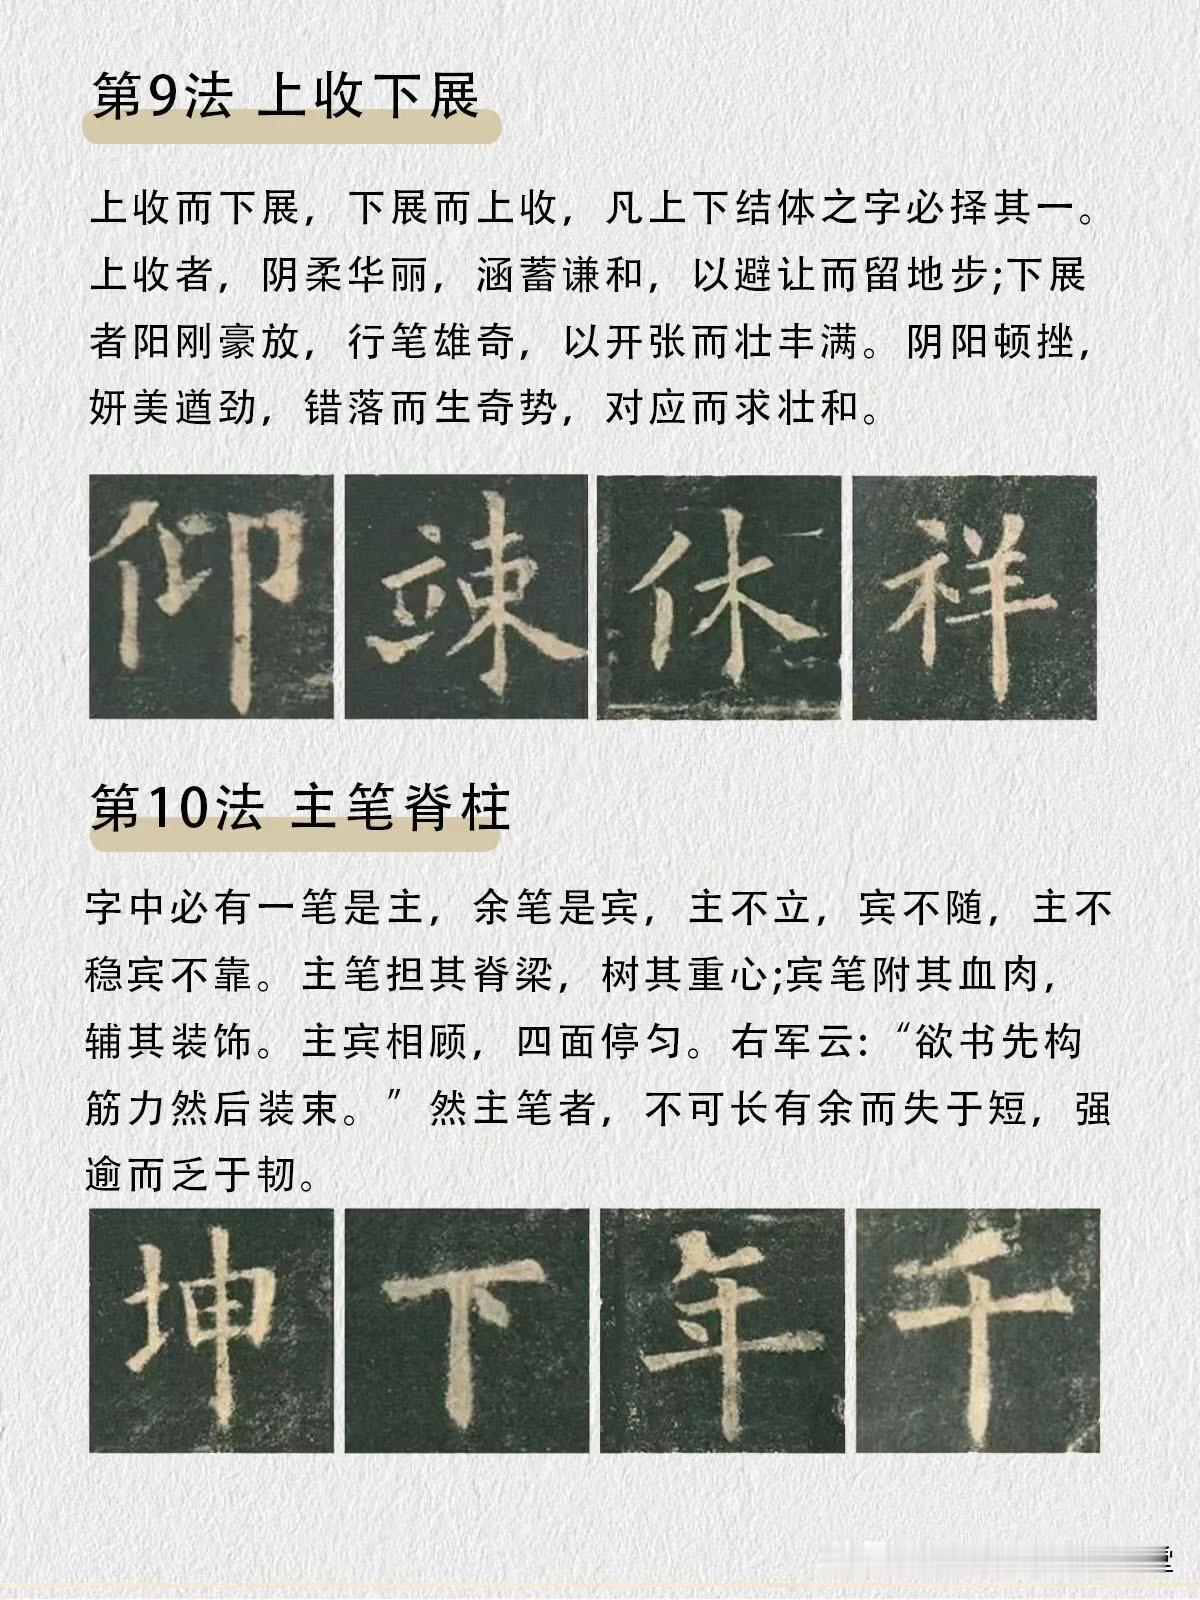 第9法 上收下展
上收而下展，下展而上收，凡上下结体之字必择其一。
上收者，阴柔华丽，涵蓄谦和，以避让而留地步;下展
者阳刚豪放，行笔雄奇，以开张而壮丰满。阴阳顿挫，
妍美遒劲，错落而生奇势，对应而求壮和。
仰 竦 休 祥
第10法 主笔脊柱
字中必有一笔是主，余笔是宾，主不立，宾不随，主不
稳宾不靠。主笔担其脊梁，树其重心;宾笔附其血肉，
辅其装饰。主宾相顾，四面停匀。右军云:“欲书先构
筋力然后装束。”然主笔者，不可长有余而失于短，强
逾而乏于韧。
坤 下 年 千